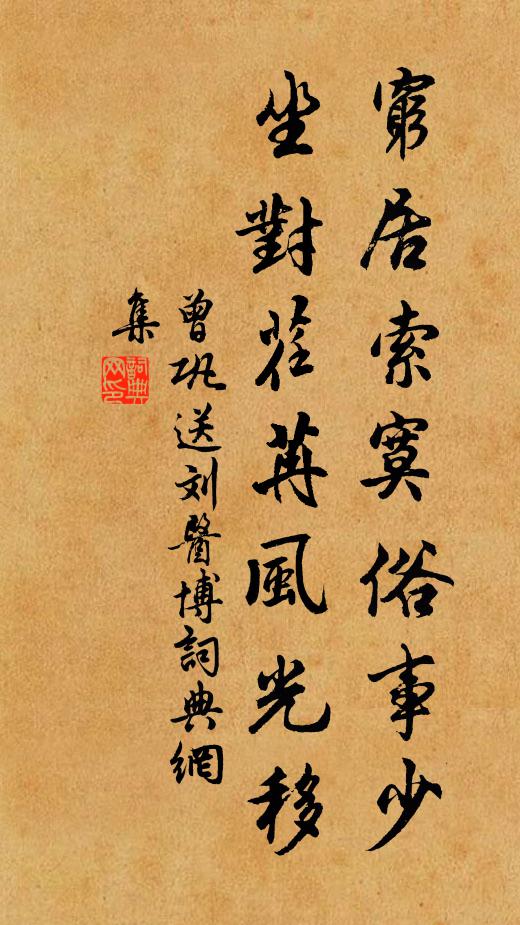 窮居索寞俗事少
坐對荏苒風光移
曾巩送刘醫博詞典網
集
詞典
网印